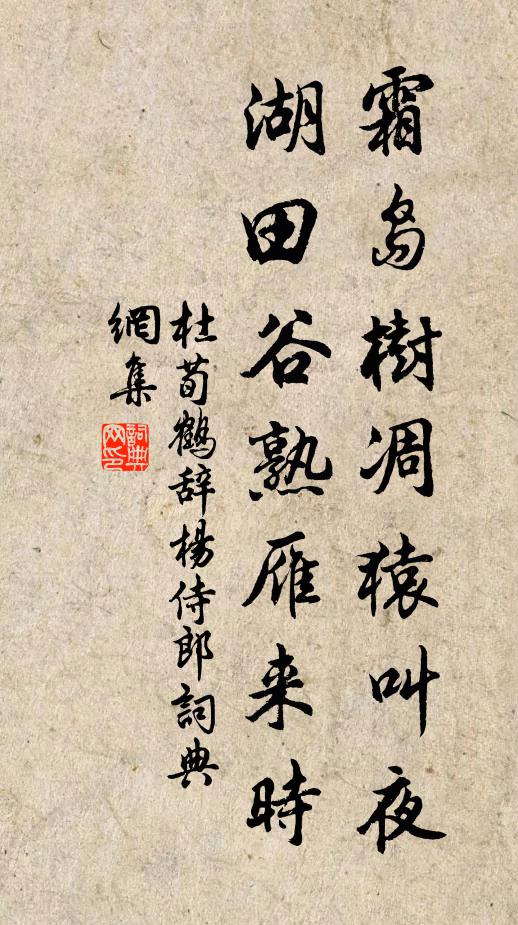 霜島樹凋猿叫夜
湖田谷熟雁来時
杜荀鶴辞楊侍郎詞典
網集
詞典网印